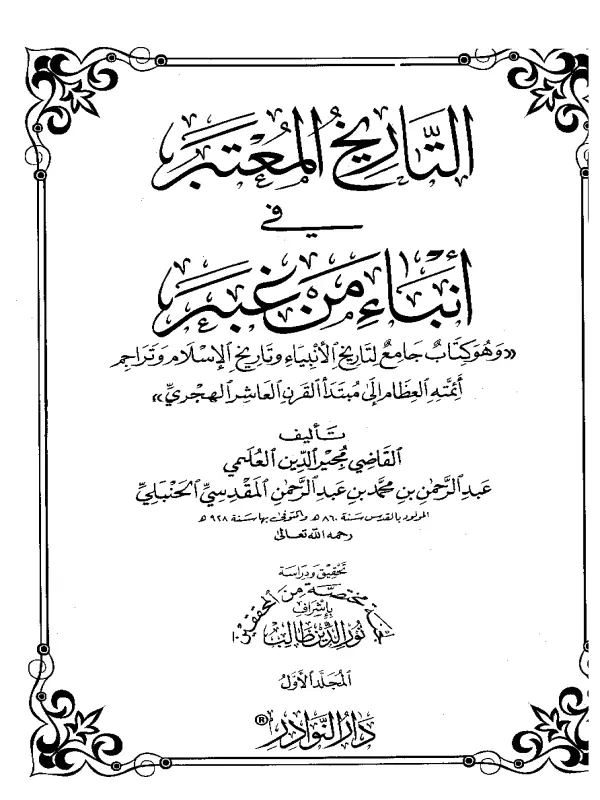 التَّارِيخُ المُعْتَبَر
في
أَنْبَاءِ مَنْ غَبَر
«وَهُوَ كِتَابٌ جَامِعٌ لِتَارِيخِ الأَنْبِيَاءِ وَتَارِيخِ الإِسْلَامِ وَتَرَاجِمِ
أَئِمَّتِهِ العِظَامِ إِلَى مُبْتَدَأ القَرْنِ العَاشِرِ الهِجْرِيِّ»
تَأليف
القَاضِي مُجِيرِ الدِّينِ العُلَيْمِي
عَبدِ الرَّحْمٰنِ بنِ مُحَمَّدِ بنِ عَبدِ الرَّحْمٰنِ المَقْدِسِيِّ الحَنْبَلِيِّ
المولود بالقدس سَنة ٨٦٠ هـ والمتوفى بها سَنة ٩٢٨ هـ
رحمه الله تعالى
تحقيق ودراسة
لجنة مختصة من المحققين
بإشراف
نُورِ الدِّين طَالِب
المجَلّد الأوّلُ
دَارُ النَّوَادِرِ®